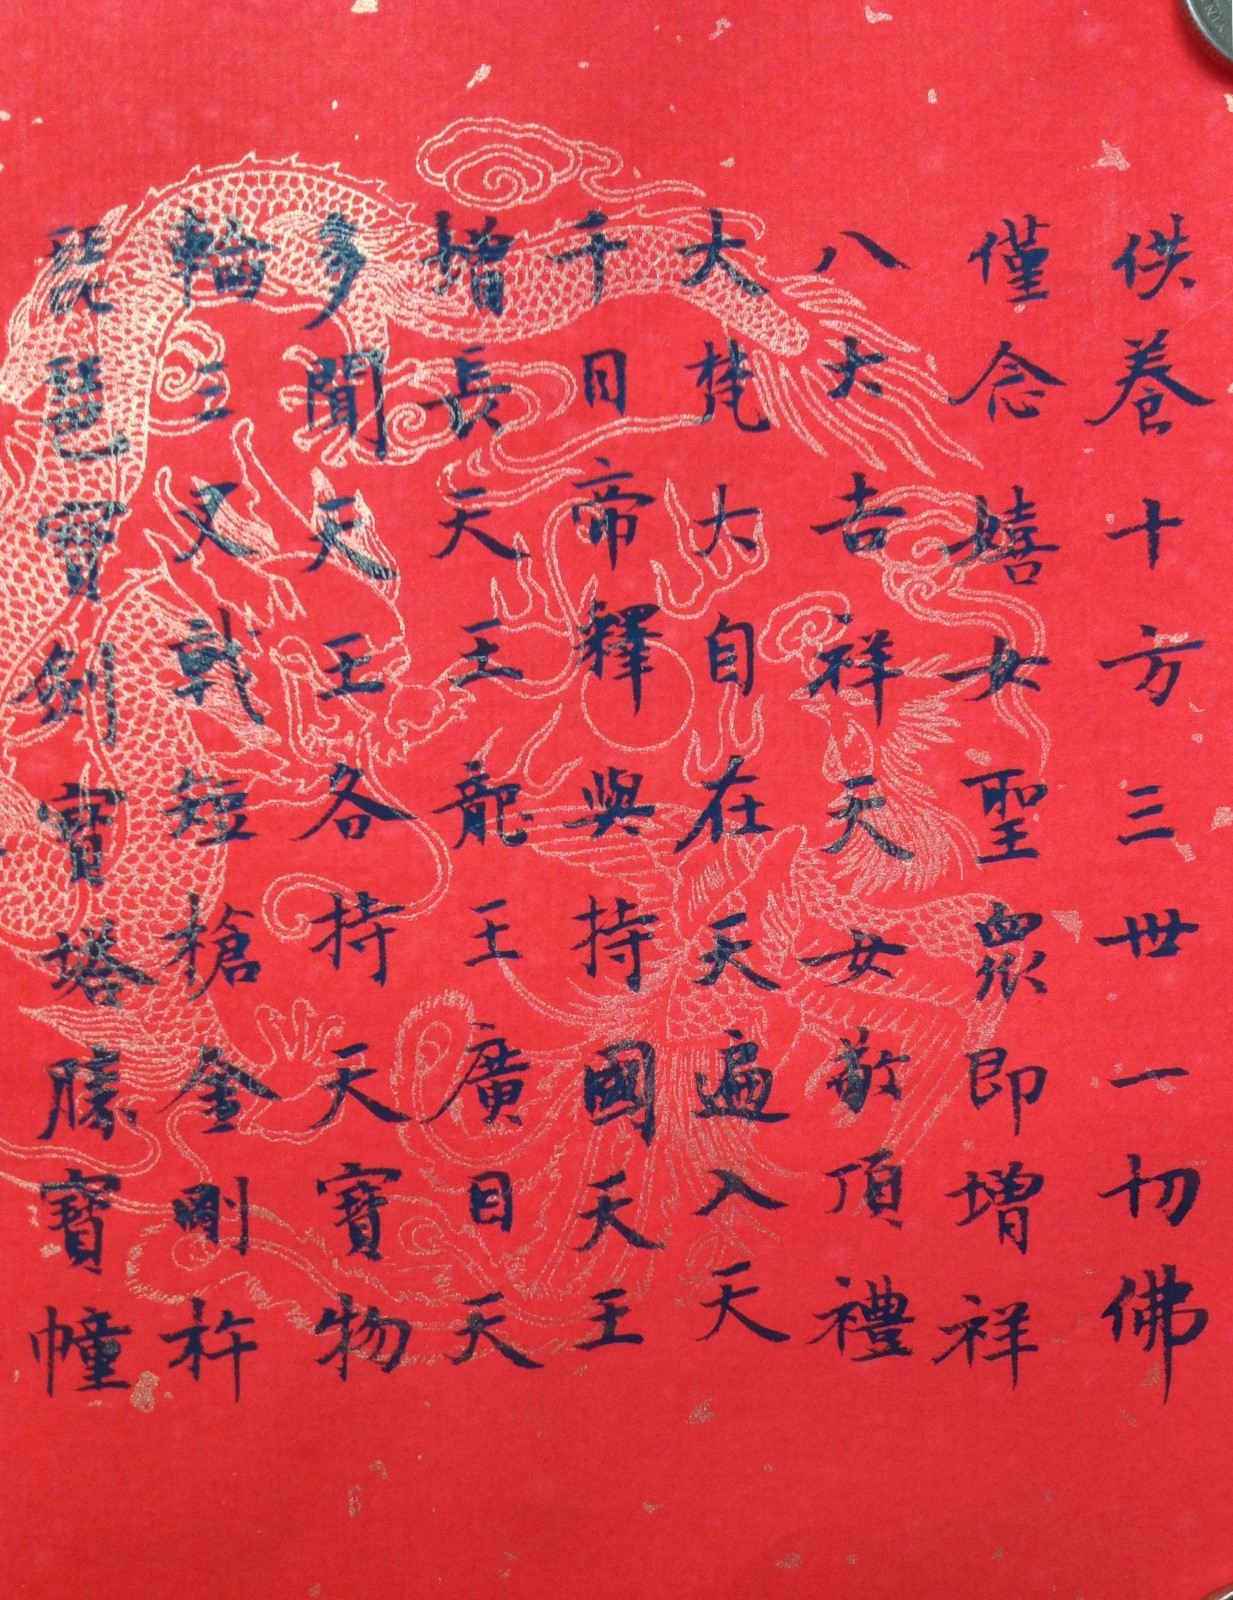 供養十方三世一切佛
僅念嬉女聖眾即增祥
八大吉祥天女敬頂禮
大梵大自在天遍入天
千日帝釋與持國天王
增長天王龍王廣目天
多聞天王各持天寶物
輪三叉戟短槍金剛杵
琵琶寶劍寶塔勝寶幢